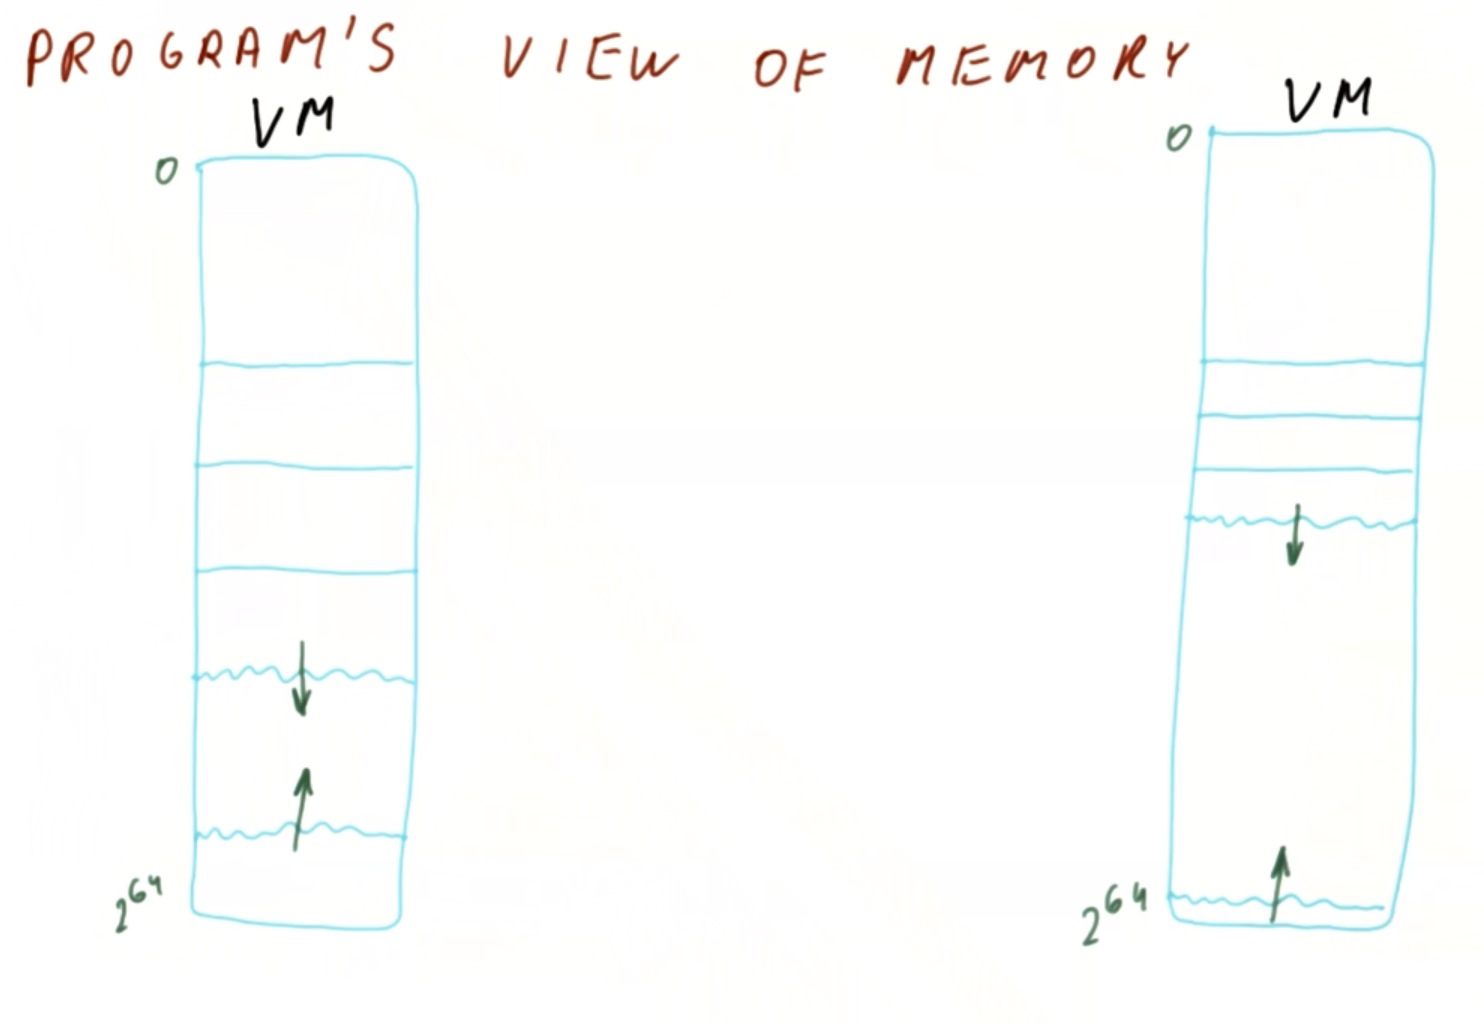 PROGRAM'S VIEW OF MEMORY
VM
0
2^64
VM
0
2^64